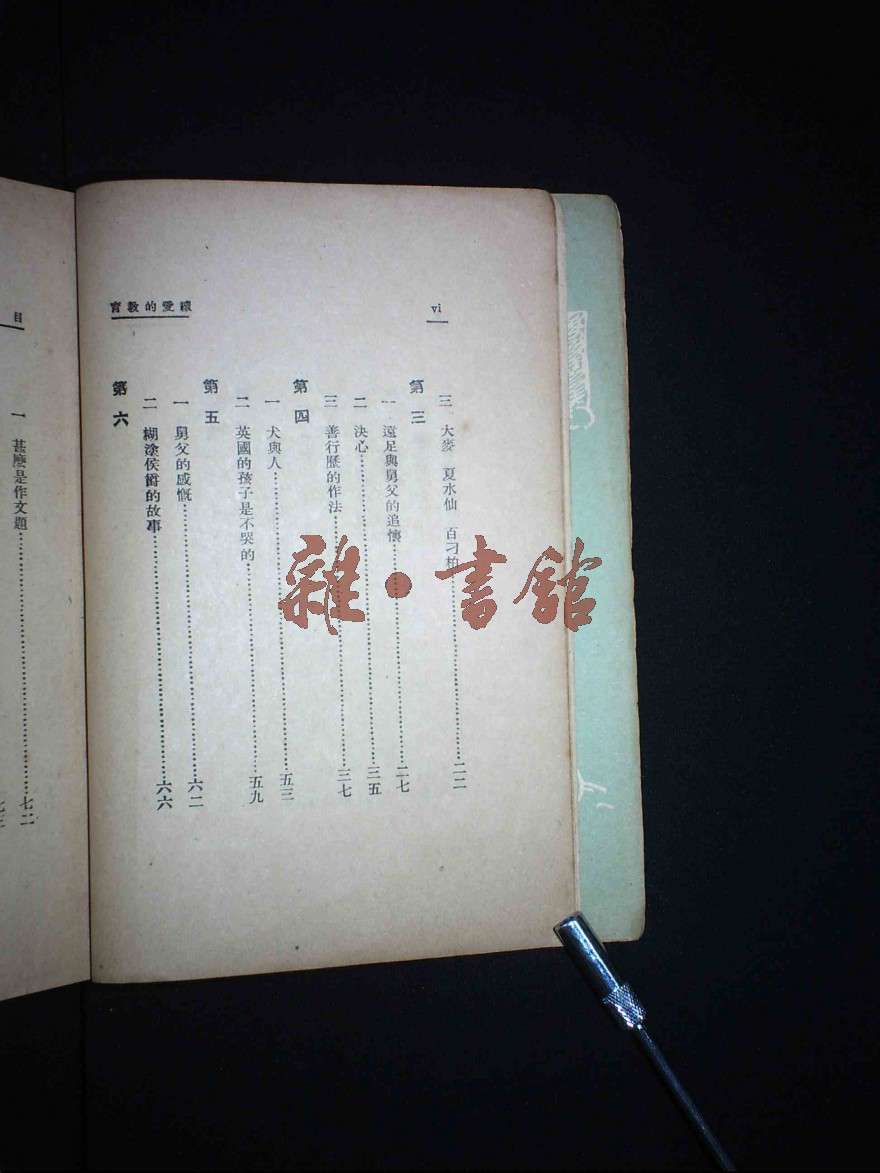 續愛的教育
vi
三 大麥 夏水仙 百刁柏……二二
第三
一 遠足與舅父的追懷……二七
二 決心……三五
三 善行歷的作法……三七
第四
一 犬與人……五三
二 英國的孩子是不哭的……五九
第五
一 舅父的感慨……六二
二 糊塗侯爵的故事……六六
第六
目
一 甚麼是作文題……七二
雜·書館